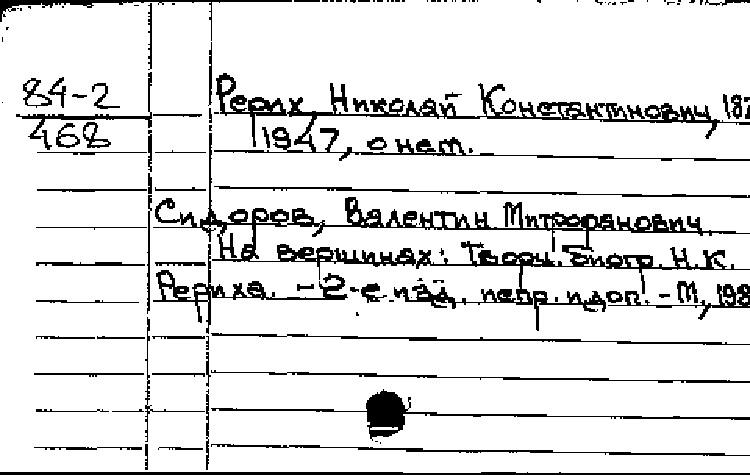 84-2
468
Рерих, Николай Константинович, 187
1947, о нем.
Сидоров, Валентин Митрофанович.
На вершинах: Творч. биогр. Н.К.
Рериха. - 2-е изд. испр. и доп. - М., 198